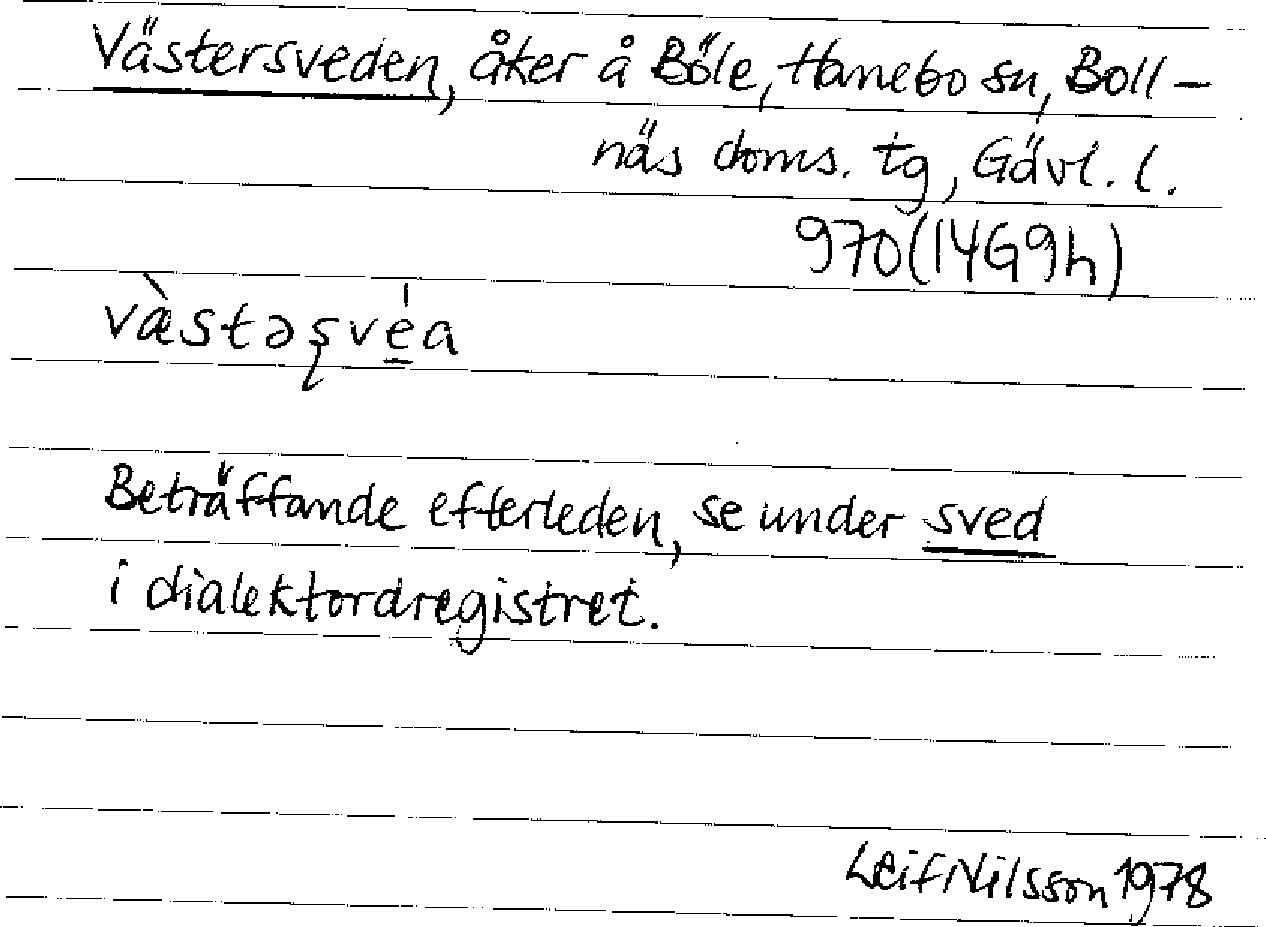 Västersveden, åker å Böle, Hanebo sn, Boll-
näs doms. tg, Gävl. l.
970(14G9h)
vὰ̀stəʂvé̲a
Beträffande efterleden, se under sved
i dialektordregistret.
Leif Nilsson 1978